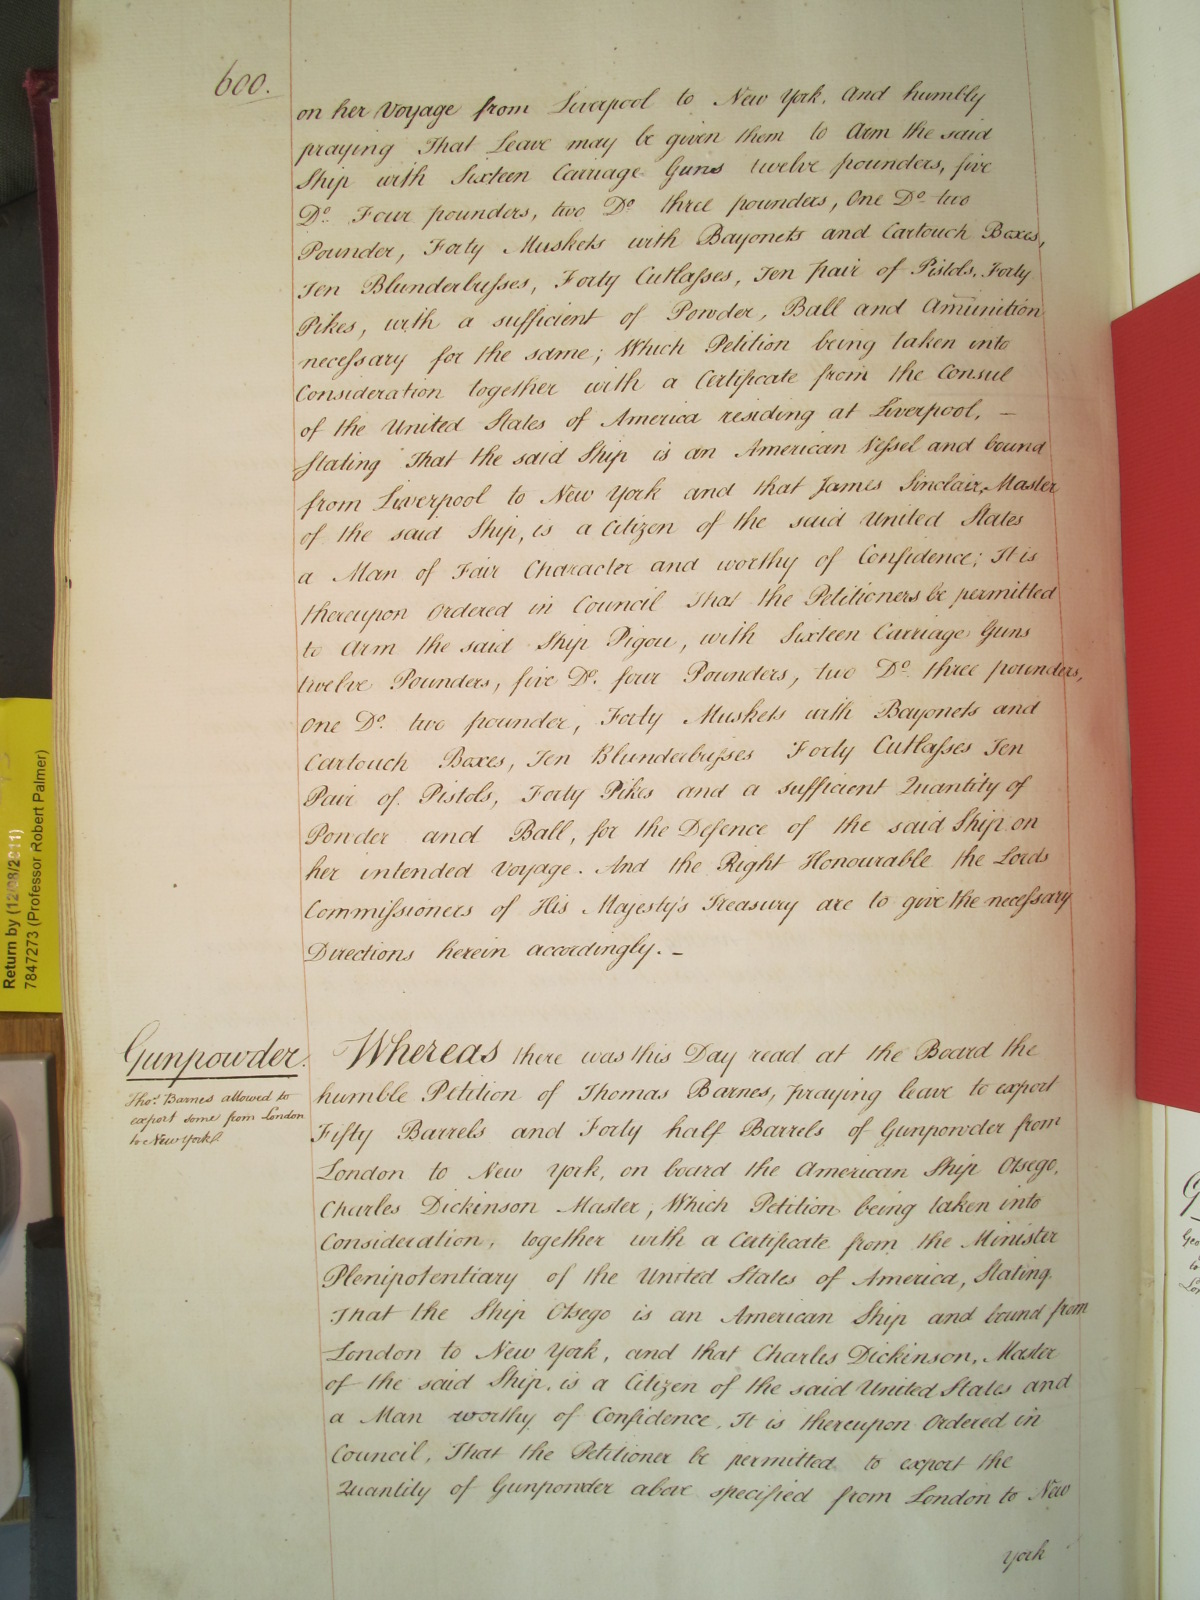 600.
on her Voyage from Liverpool to New York. And humbly
praying That Leave may be given them to Arm the said
Ship with Sixteen Carriage Guns twelve pounders, five
Do. Four pounders, two Do. three pounders, One Do. two
Pounder, Forty Muskets with Bayonets and Cartouch Boxes,
Ten Blunderbusses, Forty Cutlasses, Ten pair of Pistols. Forty
Pikes, with a sufficient of Powder, Ball and Amunition
necessary for the same; Which Petition being taken into
Consideration together with a Certificate from the Consul
of the United States of America residing at Liverpool, —
Stating That the said Ship is an American Vessel and bound
from Liverpool to New York and that James Sinclair, Master
of the said Ship, is a Citizen of the said United States
a Man of Fair Character and worthy of Confidence; It is
thereupon Ordered in Council That the Petitioners be permitted
to Arm the said Ship Pigou, with Sixteen Carriage Guns
twelve Pounders, five Do. four Pounders, two Do. three pounders,
One Do. two pounder, Forty Muskets with Bayonets and
Cartouch Boxes, Ten Blunderbusses Forty Cutlasses Ten
Pair of Pistols, Forty Pikes and a sufficient Quantity of
Powder and Ball, for the Defence of the said Ship on
her intended Voyage. And the Right Honourable the Lords
Commissioners of His Majesty's Treasury are to give the necessary
Directions herein accordingly. —
Gunpowder.
Thos. Barnes allowed to
export some from London
to New York.
Whereas there was this Day read at the Board the
humble Petition of Thomas Barnes, praying leave to export
Fifty Barrels and Forty half Barrels of Gunpowder from
London to New York, on board the American Ship Otsego,
Charles Dickinson Master; Which Petition being taken into
Consideration, together with a Certificate from the Minister
Plenipotentiary of the United States of America, Stating
That the Ship Otsego is an American Ship and bound from
London to New York, and that Charles Dickinson, Master
of the said Ship, is a Citizen of the said United States and
a Man worthy of Confidence. It is thereupon Ordered in
Council, That the Petitioner be permitted to export the
Quantity of Gunpowder above specified from London to New
York
Return by (12/08/2011)
7847273 (Professor Robert Palmer)